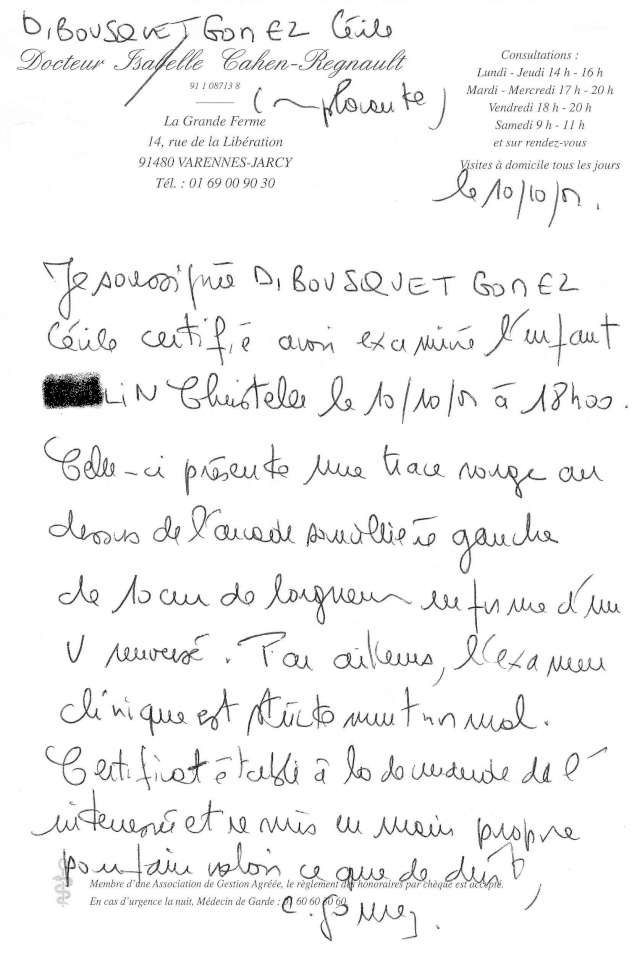 DIBOUSQUET GOMEZ Cécile
Docteur Isabelle Cahen-Regnault
91 1 08713 8
(remplaçante)
La Grande Ferme
14, rue de la Libération
91480 VARENNES-JARCY
Tél. : 01 69 00 90 30
Consultations :
Lundi - Jeudi 14 h - 16 h
Mardi - Mercredi 17 h - 20 h
Vendredi 18 h - 20 h
Samedi 9 h - 11 h
et sur rendez-vous
Visites à domicile tous les jours
le 10/10/01.
Je soussignée DIBOUSQUET GOMEZ
Cécile certifie avoir examiné l'enfant
LIN Christelle le 10/10/01 à 18h00.
Celle-ci présente une trace rouge au
dessus de l'arcade sourcilière gauche
de 10 cm de longueur en forme d'un
V renversé. Par ailleurs, l'examen
clinique est strictement normal.
Certificat établi à la demande de l'
intéressée et remis en main propre
pour faire valoir ce que de droit,
Membre d'une Association de Gestion Agréée, le règlement des honoraires par chèque est accepté.
En cas d'urgence la nuit, Médecin de Garde : 01 60 60 60 60
C. Gomez.